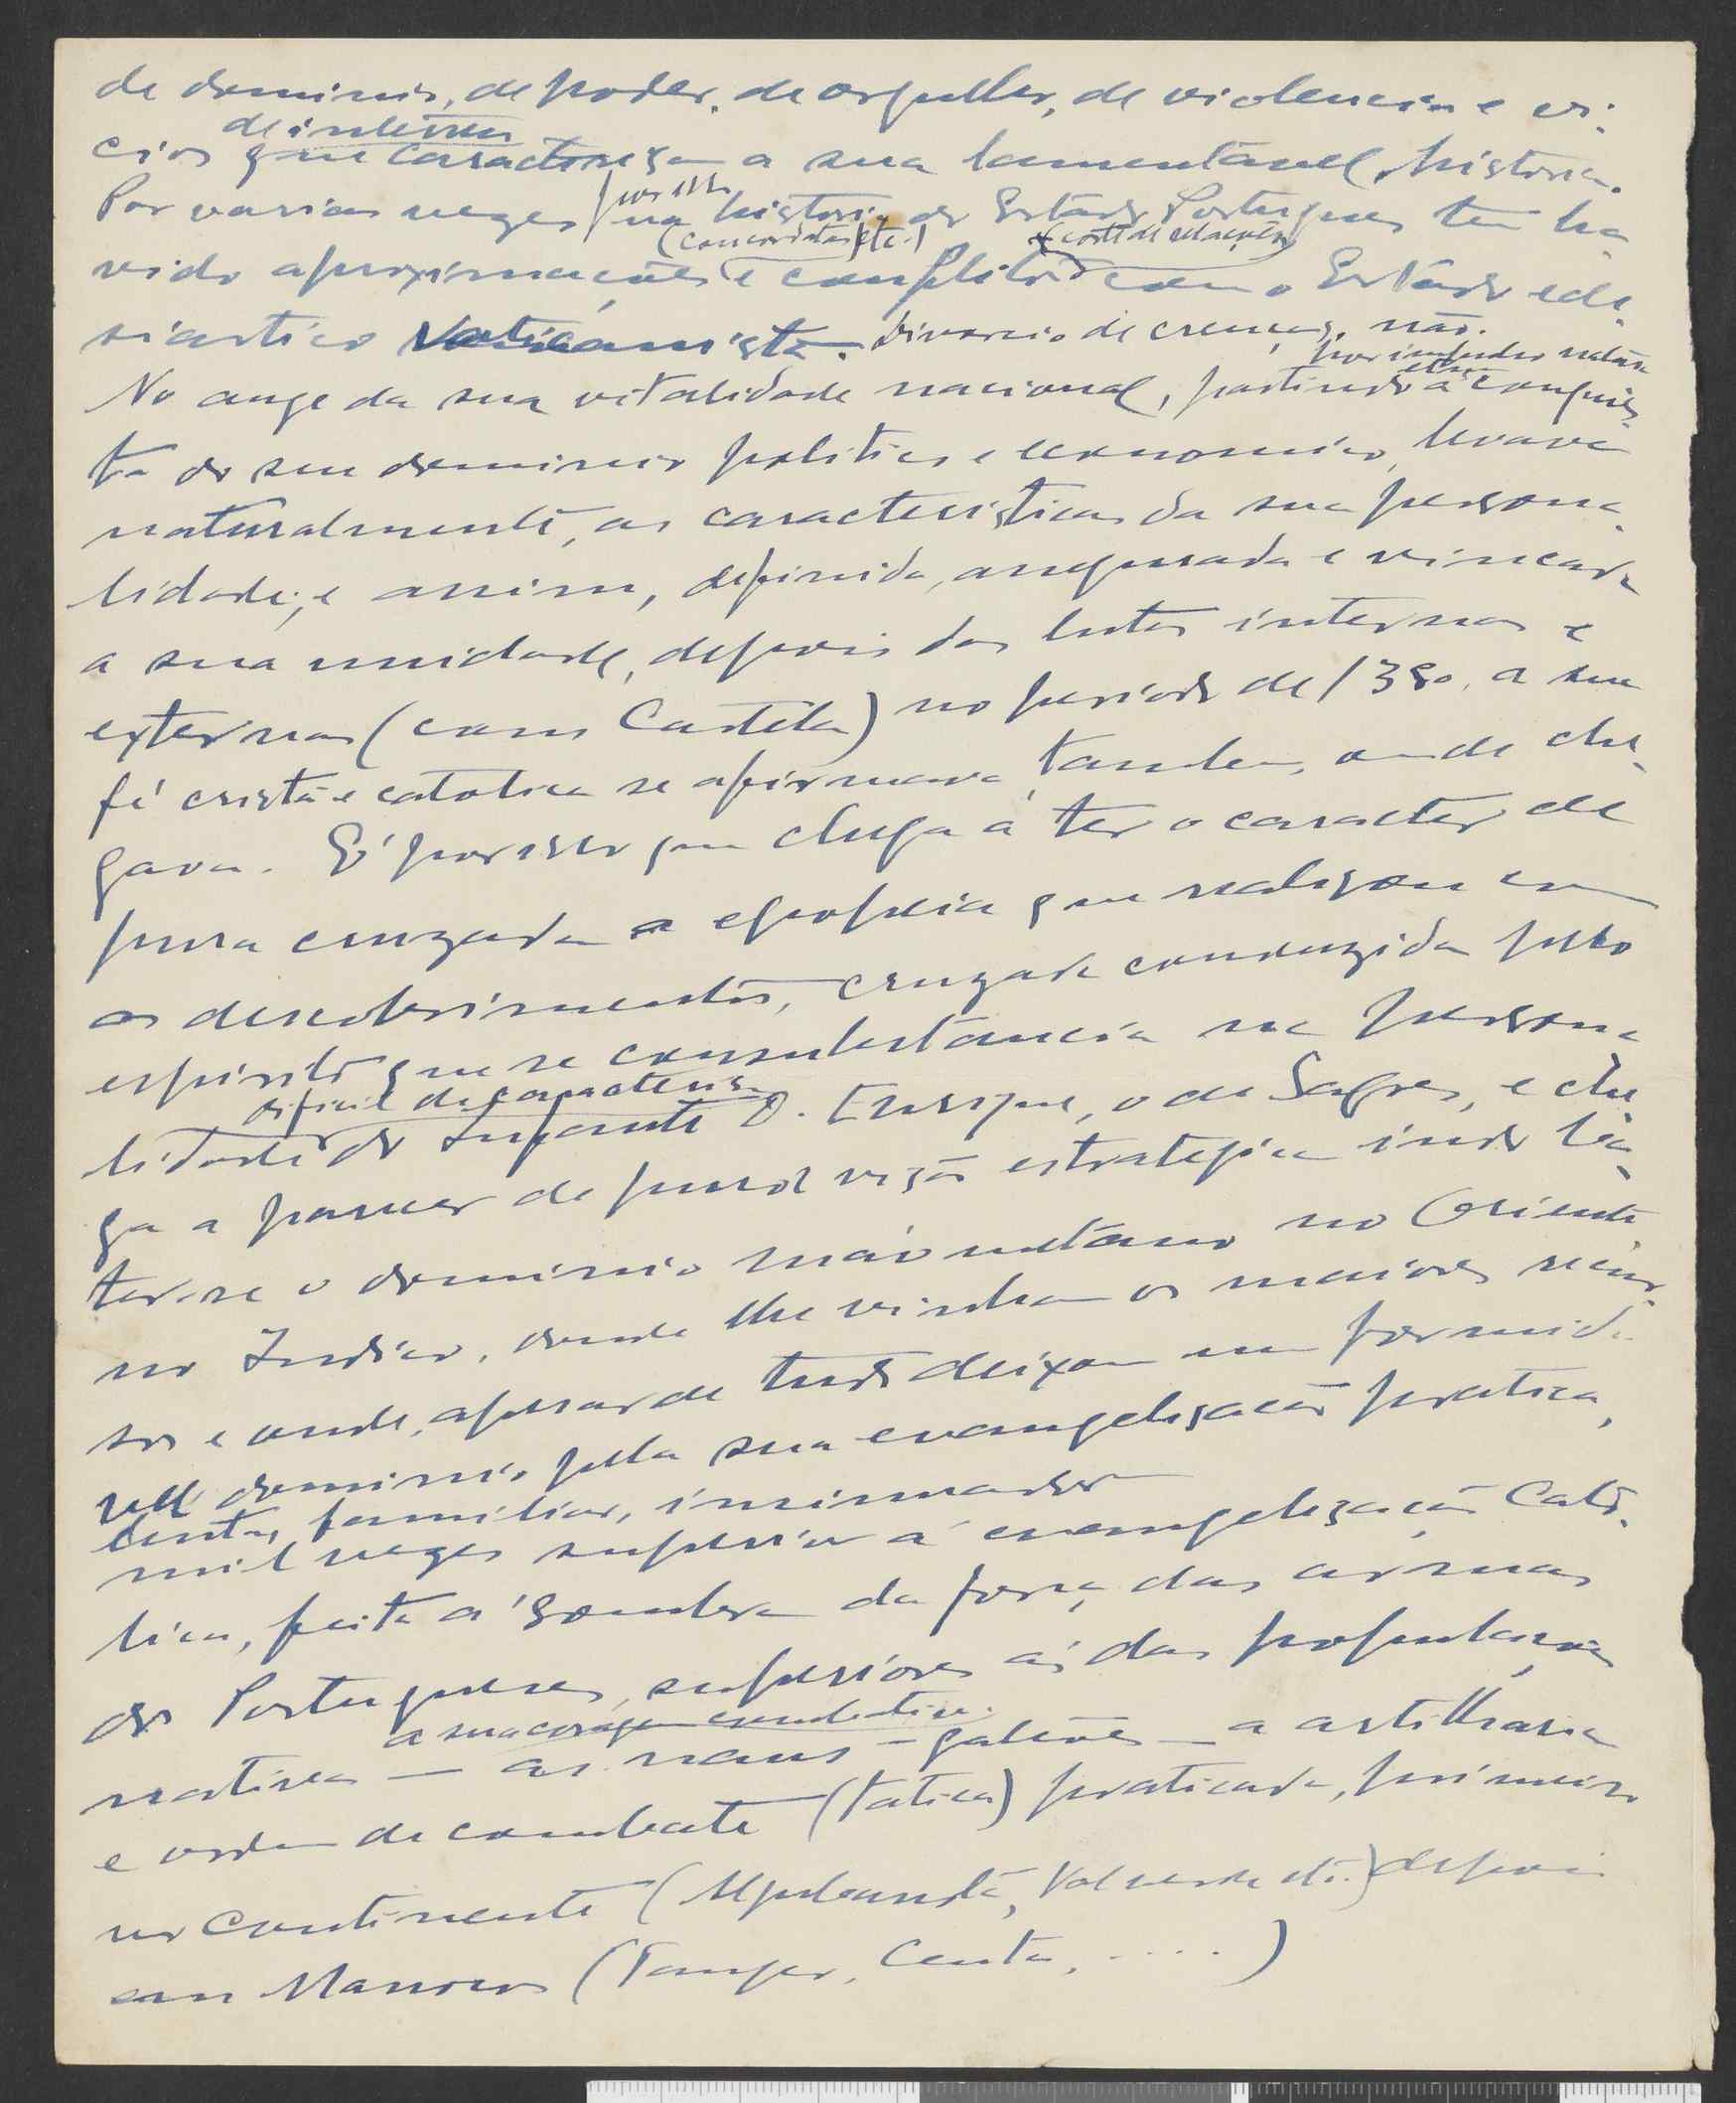 de dominio, de poder, de orgulho, de violencia e vi-
de interesses
cios que caracterisam a sua lamentavel historia.
por isso
Por varias vezes na historia do Estado Portugues tem ha-
(concordatas, etc.) (corte de relações)
vido aproximações e conflitos com o Estado ecle-
siastico vaticanista. Divorcio de crenças, não.
por impulso
No auge da sua vitalidade nacional, partindo á conquis-
ta do seu dominio politico e economico, levava
naturalmente, as caracteristicas da sua persona-
lidade, e assim, definida, assegurada e vincada
a sua unidade, depois das lutas internas e
externas (com Castela) no periodo de 1380, a sua
fé cristã e catolica se afirmava, tambem, onde che-
gava. É por isso que chega a ter o caracter de
pura cruzada a epopeia que realizou com
os descobrimentos, cruzada conduzida pelo
espirito que se consubstancia na persona
dificil de caracterisar
lidade do Infante D. Enrique, o de Sagres, e che
ga a parecer de pura visão estrategica indo ba-
ter-se o dominio maometano no Oriente
no Indico, donde lhe vinham os maiores recur-
sos e onde, apesar de tudo deixou um formida
vel dominio pela sua evangelisação pratica,
lenta, familiar, insinuador
mil vezes superior á evangelisação Cató-
lica, feita á sombra da força, das armas
dos Portugueses, superiores ás das populações
a sua coragem combativa
nativas — as naus — galeões — a artilharia
e ordem de combate (tatica) praticada, primeiro
no Continente (Aljubarrota, Valverde etc.) depois
em Marrocos (Tanger, Ceuta, . . . . )